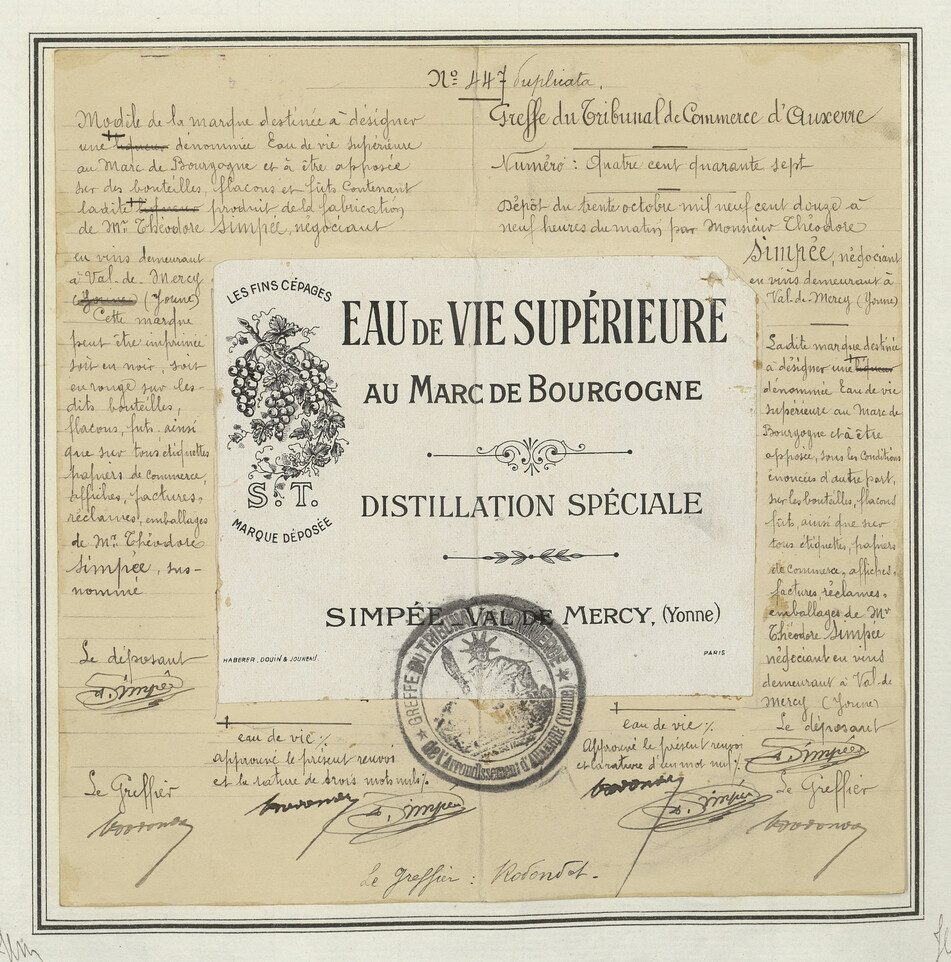 No 447 Duplicata.
Modèle de la marque destinée à désigner
une liqueur dénommée Eau de vie supérieure
au Marc de Bourgogne et à être apposée
sur des bouteilles, flacons et futs contenant
ladite liqueur produit de la fabrication
de Mr Théodore Simpée, négociant
en vins demeurant
à Val-de-Mercy
(Yonne) (Yonne)
Cette marque
peut être imprimée
soit en noir, soit
en rouge sur les-
dits bouteilles,
flacons, futs, ainsi
que sur tous étiquettes
papiers de commerce,
affiches, factures,
réclames, emballages
de Mr Théodore
Simpée, sus-
nommé
Le déposant
T. Simpée
Greffe du Tribunal de Commerce d'Auxerre
Numéro : Quatre cent quarante sept
Dépôt du trente octobre mil neuf cent douze à
neuf heures du matin par Monsieur Théodore
Simpée, négociant
en vins demeurant à
Val-de-Mercy (Yonne)
Ladite marque destinée
à désigner une liqueur
dénommée Eau de vie
supérieure au Marc de
Bourgogne et à être
apposée, sous les conditions
énoncées d'autre part,
sur les bouteilles, flacons
futs, ainsi que sur
tous étiquettes, papiers
de commerce, affiches,
factures, réclames,
emballages de Mr
Théodore Simpée
négociant en vins
demeurant à Val-de
Mercy (Yonne)
Le déposant
T. Simpée
LES FINS CÉPAGES
S.T.
MARQUE DÉPOSÉE
EAU DE VIE SUPÉRIEURE
AU MARC DE BOURGOGNE
DISTILLATION SPÉCIALE
SIMPÉE VAL DE MERCY, (Yonne)
HABERER, DOUIN & JOUNEAU.
PARIS
GREFFE DU TRIBUNAL DE COMMERCE
de l'Arrondissement d'AUXERRE (Yonne)
eau de vie ./.
approuvé le présent renvoi
et la rature de trois mots nuls ./.
Rodondot T. Simpée
Le Greffier
Rodondot
eau de vie ./.
Approuvé le présent renvoi
et la rature d'un mot nul ./.
Rodondot T. Simpée
Le Greffier
Rodondot
Le Greffier : Rodondot.